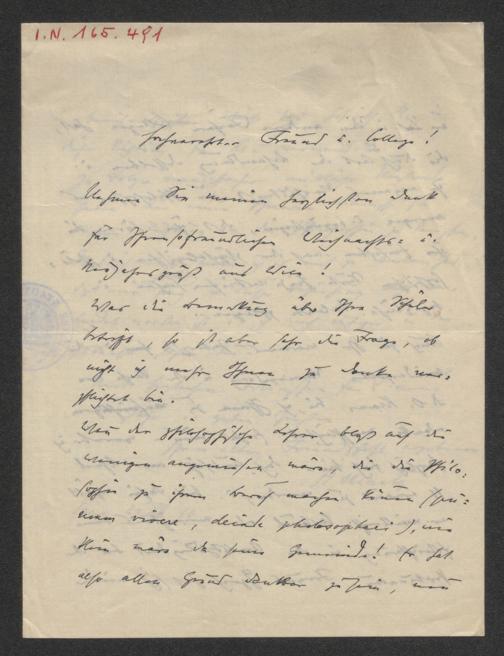 I.N. 165.491
Hochverehrter Freund u. College!
Nehmen Sie meinen herzlichsten Dank
für Ihren so freundlichen Weihnachts- u.
Neujahrsgruß aus Wien!
Was die Bemerkung über Ihre Schüler
betrifft, so ist aber sehr die Frage, ob
nicht ich mehr Ihnen zu Danke ver-
pflichtet bin.
Wenn der philosophische Lehrer bloß auf die
wenigen angewiesen wäre, die die Philo-
sophie zu ihrem Beruf machen können (pri-
mum vivere, deinde philosophari), wie
klein wäre da seine Gemeinde! Er hat
also allen Grund dankbar zu sein, wenn